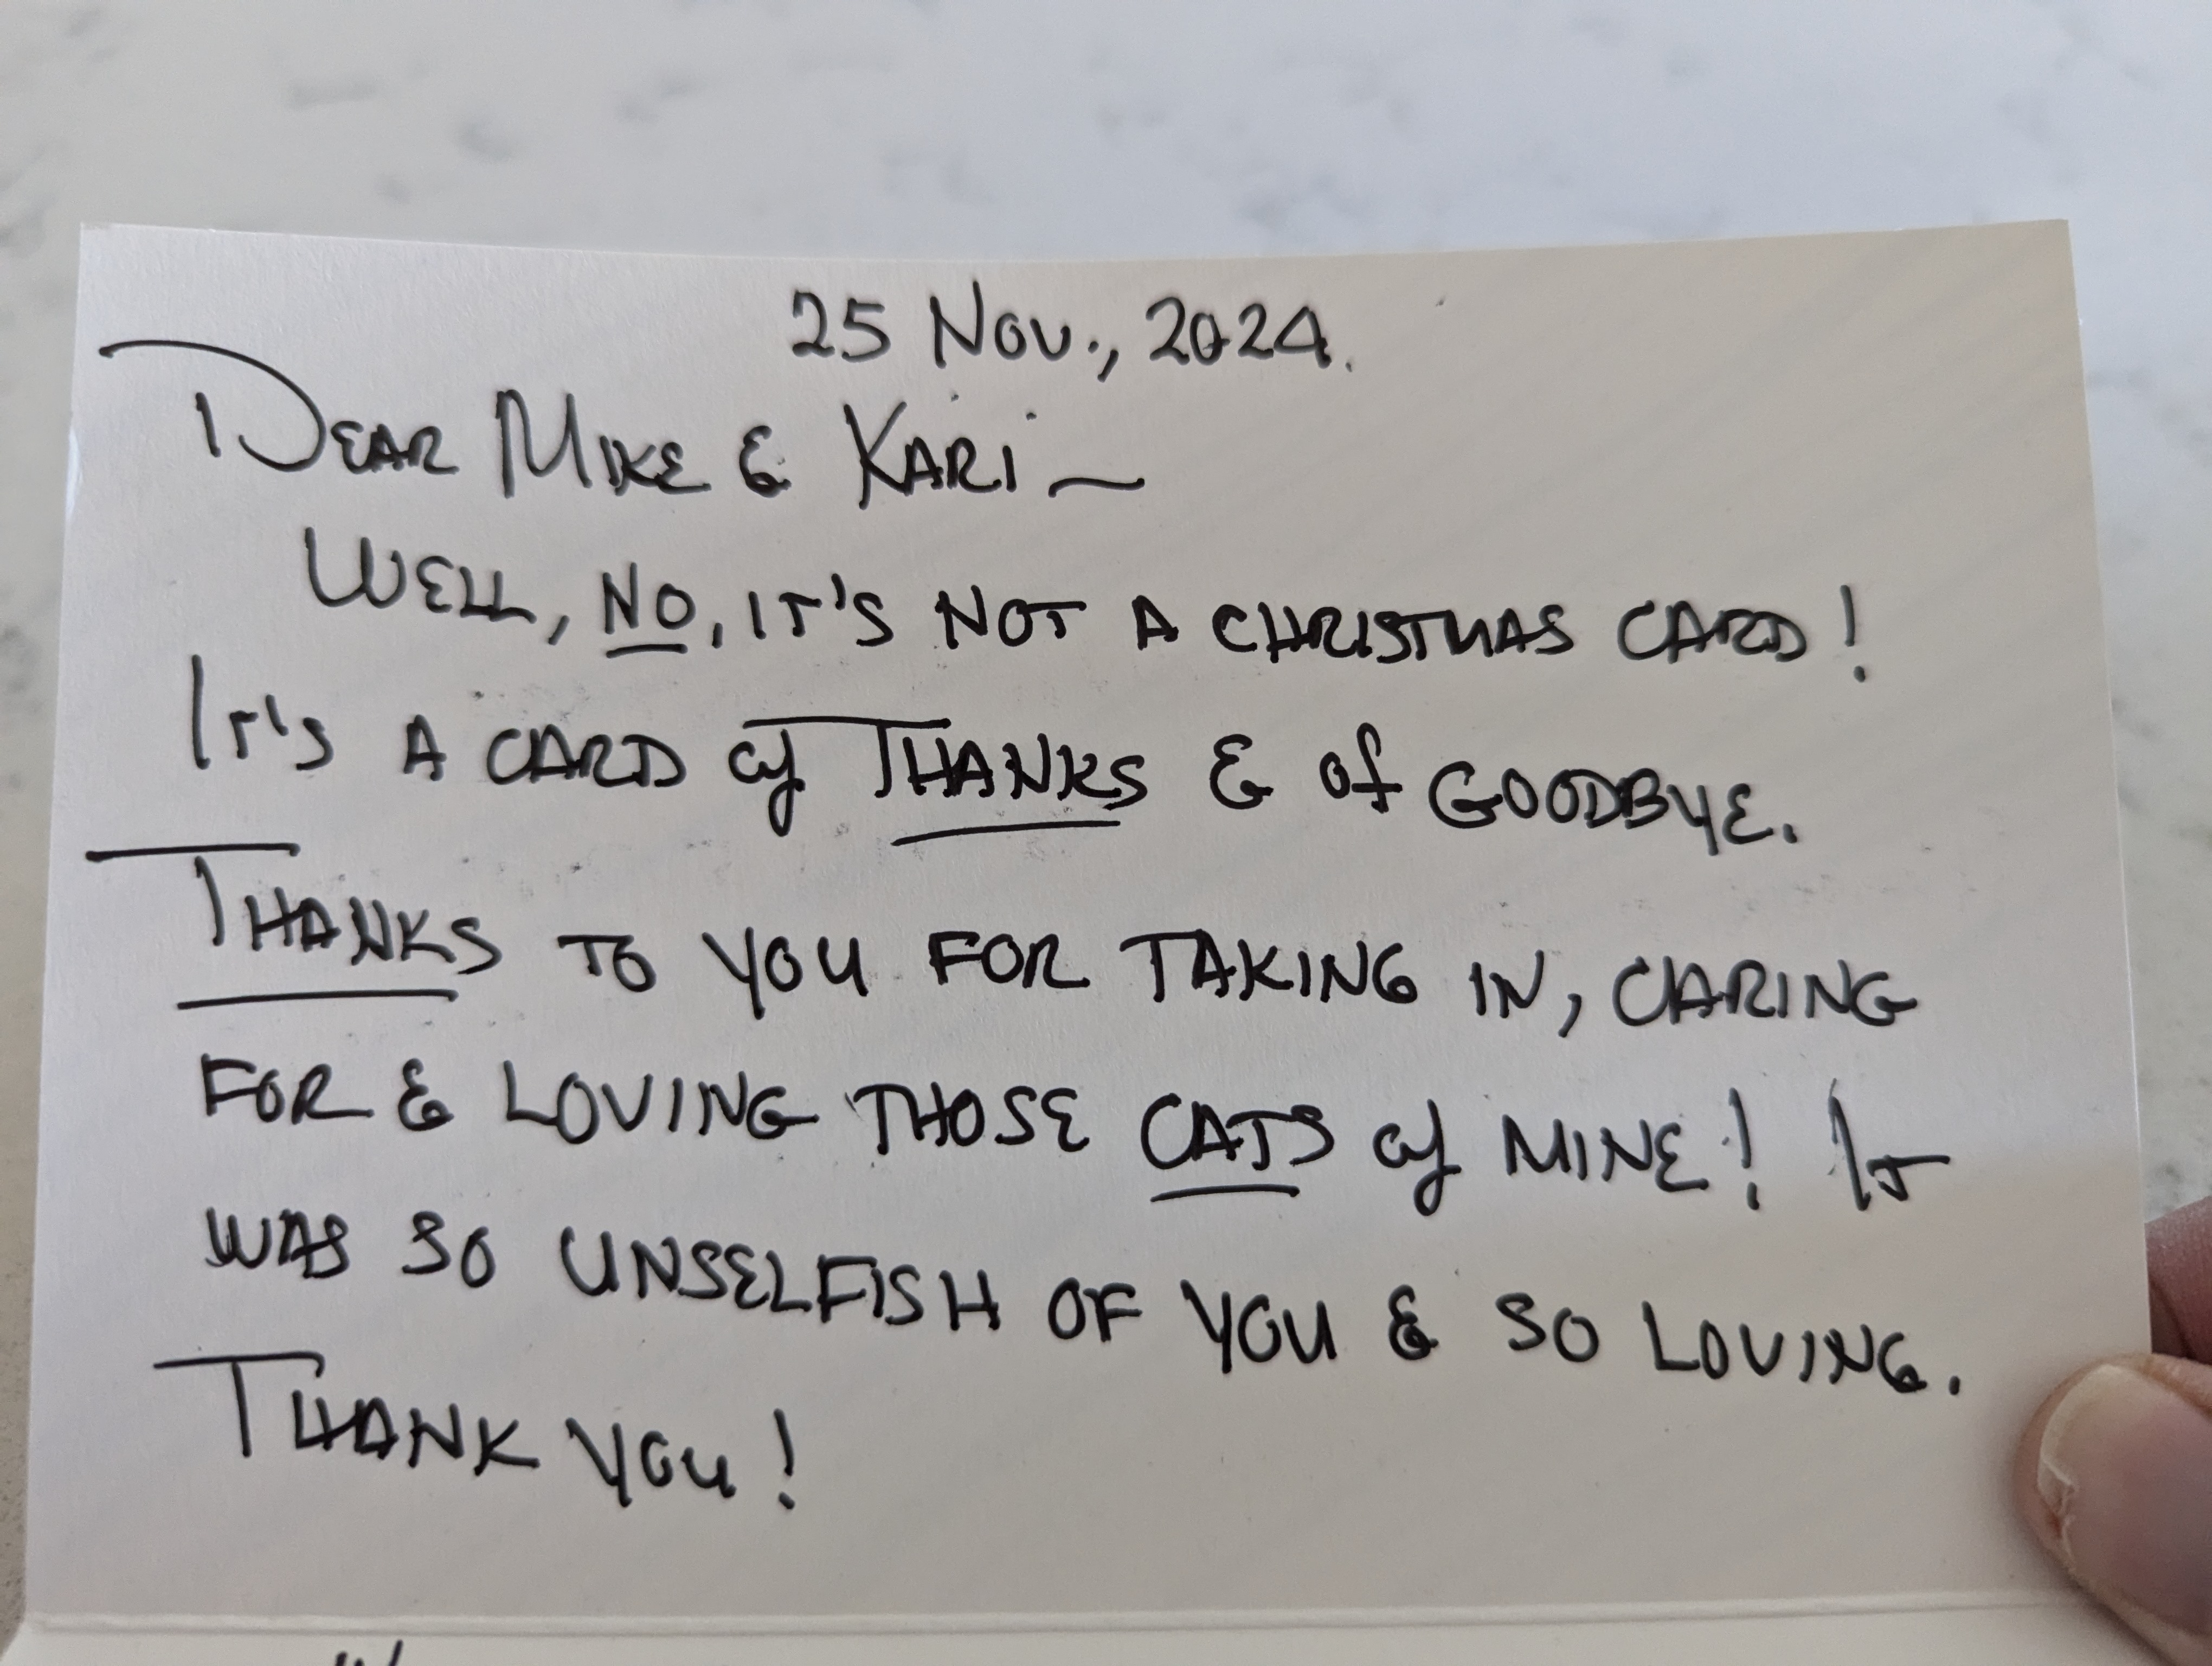 25 Nov., 2024.
Dear Mike & Kari ~
Well, NO, it's not a Christmas card!
It's a card of Thanks & of Goodbye.
Thanks to you for taking in, caring
for & loving those cats of mine! It
was so unselfish of you & so loving.
Thank you!